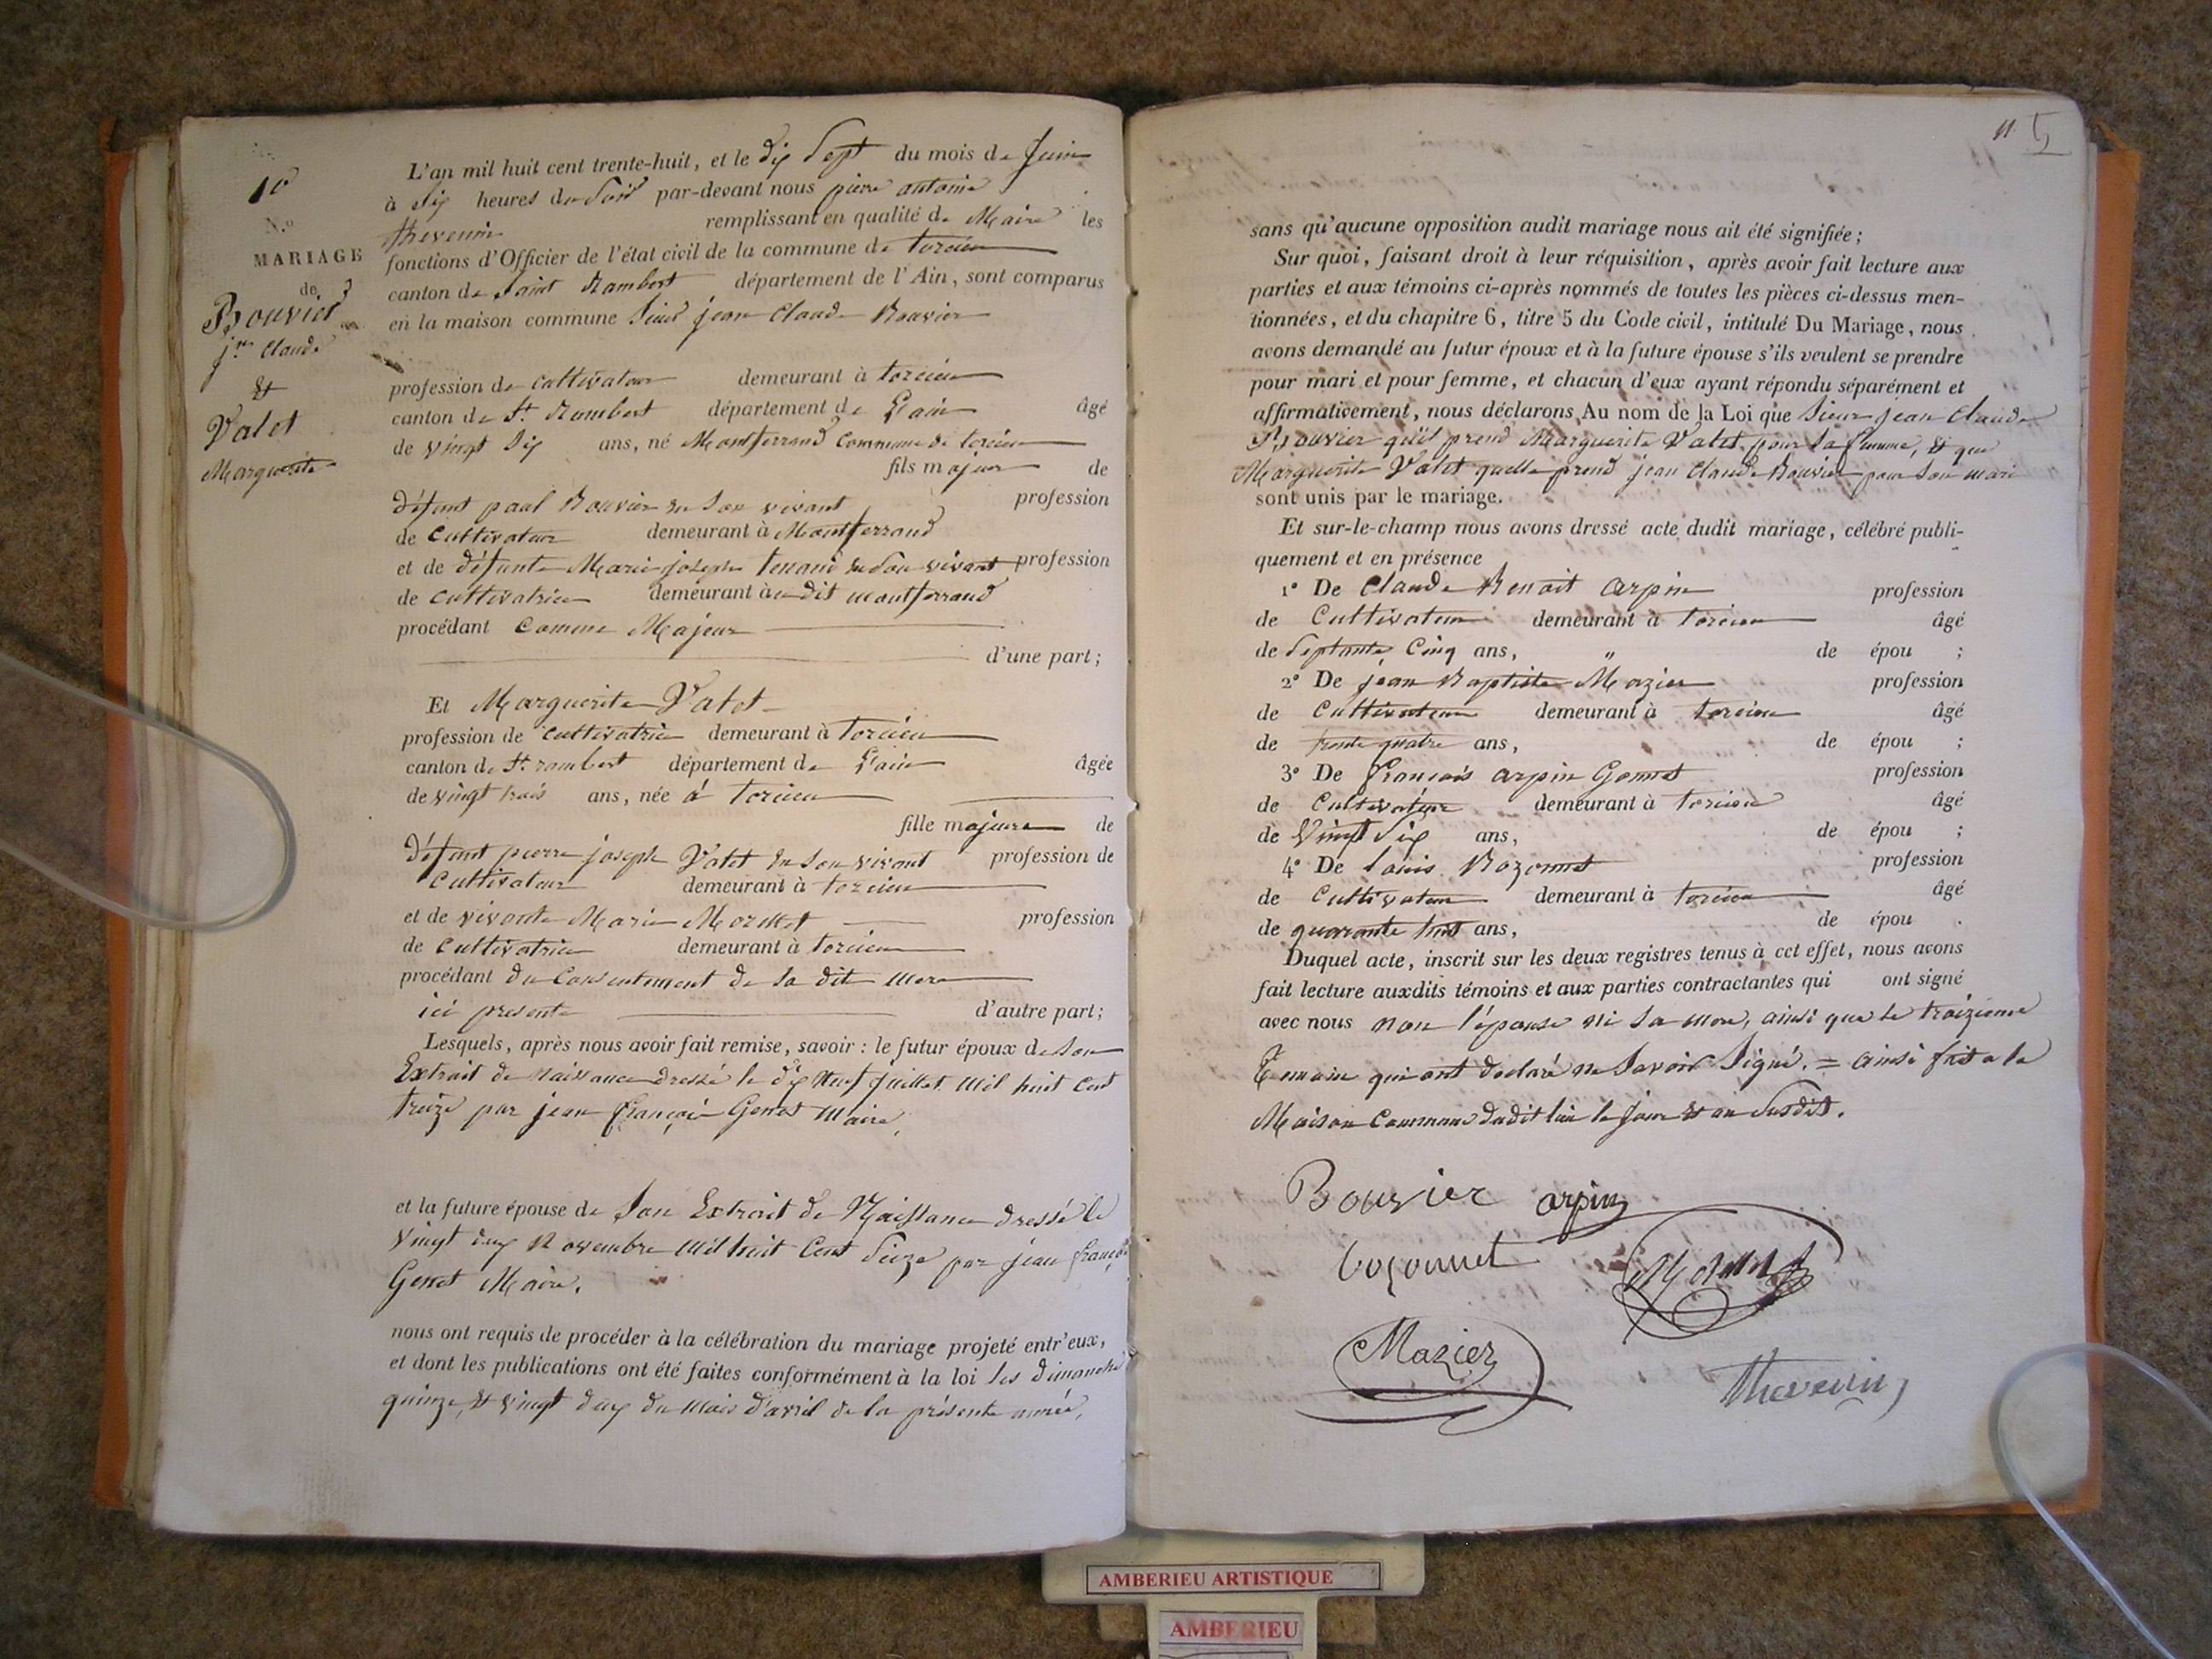 10
N.o
MARIAGE
de
Bouvier
jn Claude
&
Valet
Marguerite
L'an mil huit cent trente-huit, et le dix Sept du mois de Juin
à Six heures du Soir par-devant nous pierre antoine
thevenin remplissant en qualité de Maire les
fonctions d'Officier de l'état civil de la commune de torcieu
canton de Saint Rambert département de l'Ain, sont comparus
en la maison commune Sieur jean Claude Bouvier
profession de cultivateur demeurant à torcieu
canton de St. Rambert département de L'ain âgé
de vingt Six ans, né Montferrand Commune de torcieu
fils majeur de
défunt paul Bouvier en Son vivant profession
de Cultivateur demeurant à Montferrand
et de défunte Marie joseph tenand en Son vivant profession
de cultivatrice demeurant au dit montferrand
procédant Comme Majeur
d'une part;
Et Marguerite Valet
profession de cultivatrice demeurant à torcieu
canton de St. rambert département de L'ain âgée
de vingt trois ans, née à torcieu
fille majeure de
défunt pierre joseph Valet en Son vivant profession de
Cultivateur demeurant à torcieu
et de vivante Marie profession
de Cultivatrice demeurant à torcieu
procédant du Consentement de Sa dit mere
ici presente d'autre part;
Lesquels, après nous avoir fait remise, savoir : le futur époux de Son
Extrait de Naissance dressé le dix Neuf juillet Mil huit Cent
treize par jean François Genet Maire,
et la future épouse de Son Extrait de Naissance dressé le
Vingt deux Novembre Mil huit Cent Seize par jean françois
Genet Maire.
nous ont requis de procéder à la célébration du mariage projeté entr'eux,
et dont les publications ont été faites conformément à la loi les dimanche
quinze, & vingt deux du Mois d'avril de la présente année,
11
sans qu'aucune opposition audit mariage nous ait été signifiée;
Sur quoi, faisant droit à leur réquisition, après avoir fait lecture aux
parties et aux témoins ci-après nommés de toutes les pièces ci-dessus men-
tionnées, et du chapitre 6, titre 5 du Code civil, intitulé Du Mariage, nous
avons demandé au futur époux et à la future épouse s'ils veulent se prendre
pour mari et pour femme, et chacun d'eux ayant répondu séparément et
affirmativement, nous déclarons Au nom de la Loi que Sieur jean Claude
Bouvier qu'il prend Marguerite Valet pour Sa femme, & que
Marguerite Valet quelle prend jean Claude Bouvier pour Son mari
sont unis par le mariage.
Et sur-le-champ nous avons dressé acte dudit mariage, célébré publi-
quement et en présence
1° De Claude Benoit Arpin profession
de Cultivateur demeurant à torcieu âgé
de Septante Cinq ans, " de épou ;
2° De jean Baptiste Mazier profession
de Cultivateur demeurant à torcieu âgé
de trente quatre ans, de épou ;
3° De françois arpin Gonnet profession
de Cultivateur demeurant à torcieu âgé
de Vingt Six ans, de épou ;
4° De louis Bozonnet profession
de Cultivateur demeurant à torcieu âgé
de quarante huit ans, de épou .
Duquel acte, inscrit sur les deux registres tenus à cet effet, nous avons
fait lecture auxdits témoins et aux parties contractantes qui ont signé
avec nous non l'épouse ni Sa mere, ainsi que le troizieme
Temoin qui ont declaré ne Savoir Signé. = ainsi fait a la
Maison Commune dudit lieu le jour & an Susdit.
Bouvier arpin
bozonnet
Mazier
thevenin
AMBERIEU ARTISTIQUE
AMBERIEU